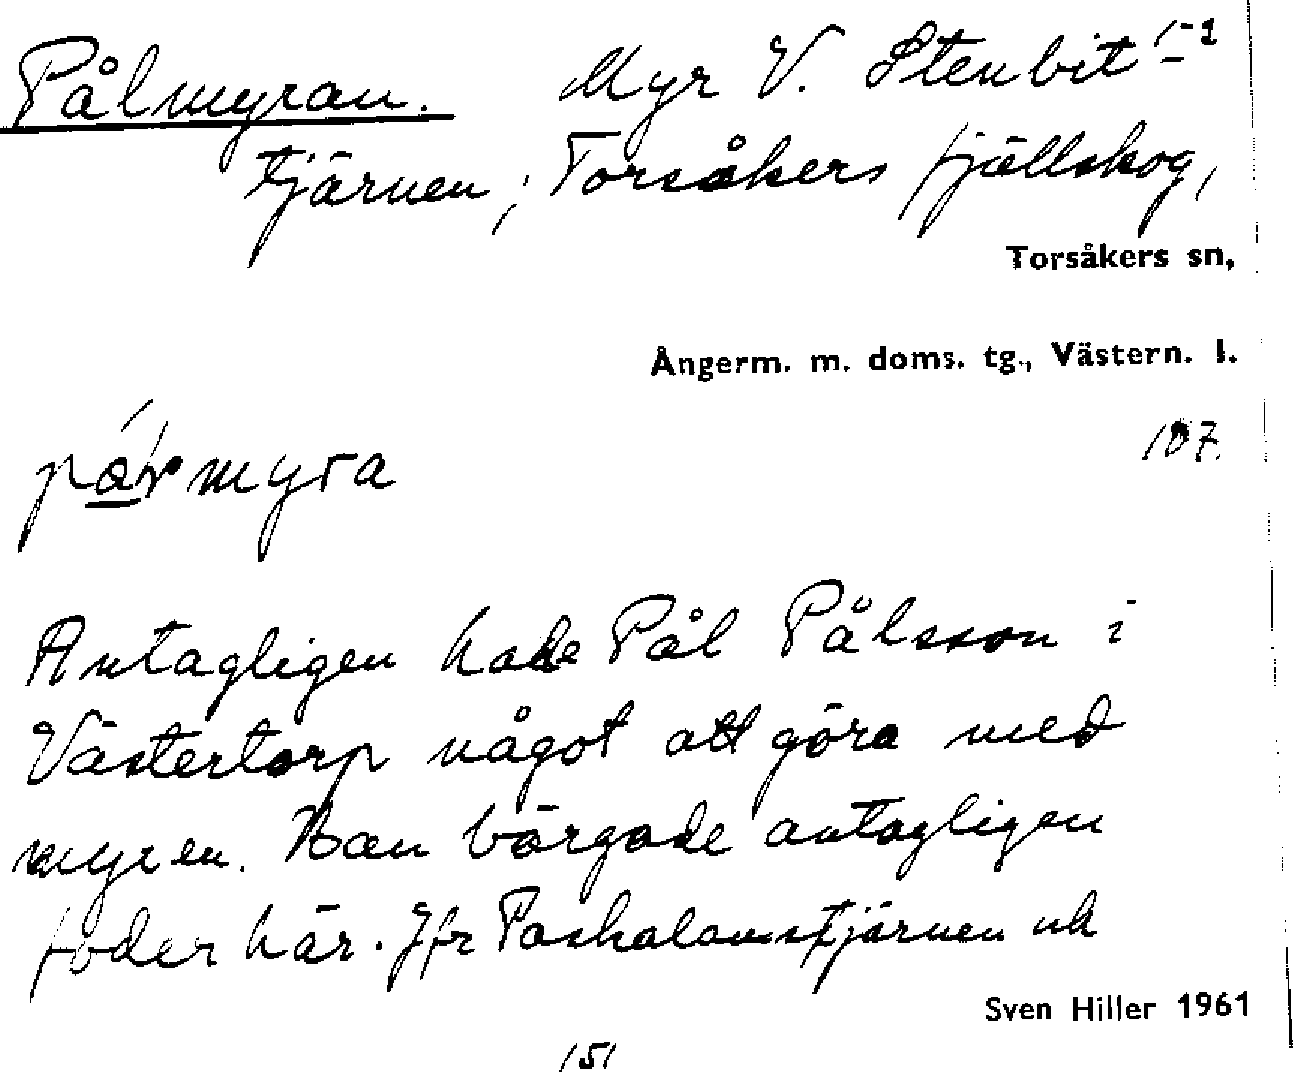 Pålmyran. Myr V. Stenbit-
tjärnen; Torsåkers fjällskog,
Torsåkers sn,
Ångerm. m. doms. tg., Västern. l.
187.
myra
Antagligen hade Pål Pålsson i
Västertorp något att göra med
myren. Han bärgade antagligen
foder här. Jfr Paskalamstjärnen uk
Sven Hiller 1961
151